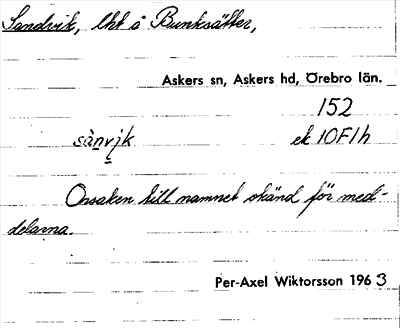 Sandvik, lht å Bunksätter,
Askers sn, Askers hd, Örebro län.
152
sànvjk ek 10F1h
Orsaken till namnet okänd för med-
delarna.
Per-Axel Wiktorsson 1963